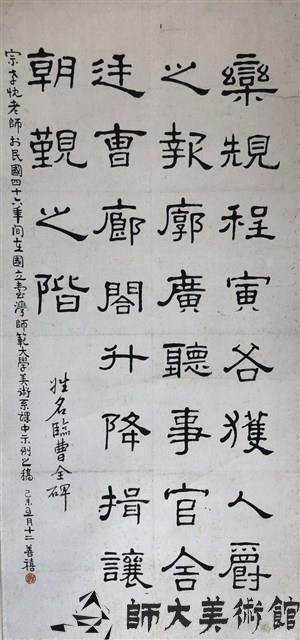 欒規程寅各獲人爵
之報廓廣聽事官舍
廷曹廊閣升降揖讓
朝覲之階
姓名臨曹全碑
宗孝忱老師於民國四十六年間在國立臺灣師範大學美術系課中示例之稿 月十二 善禧
師大美術館